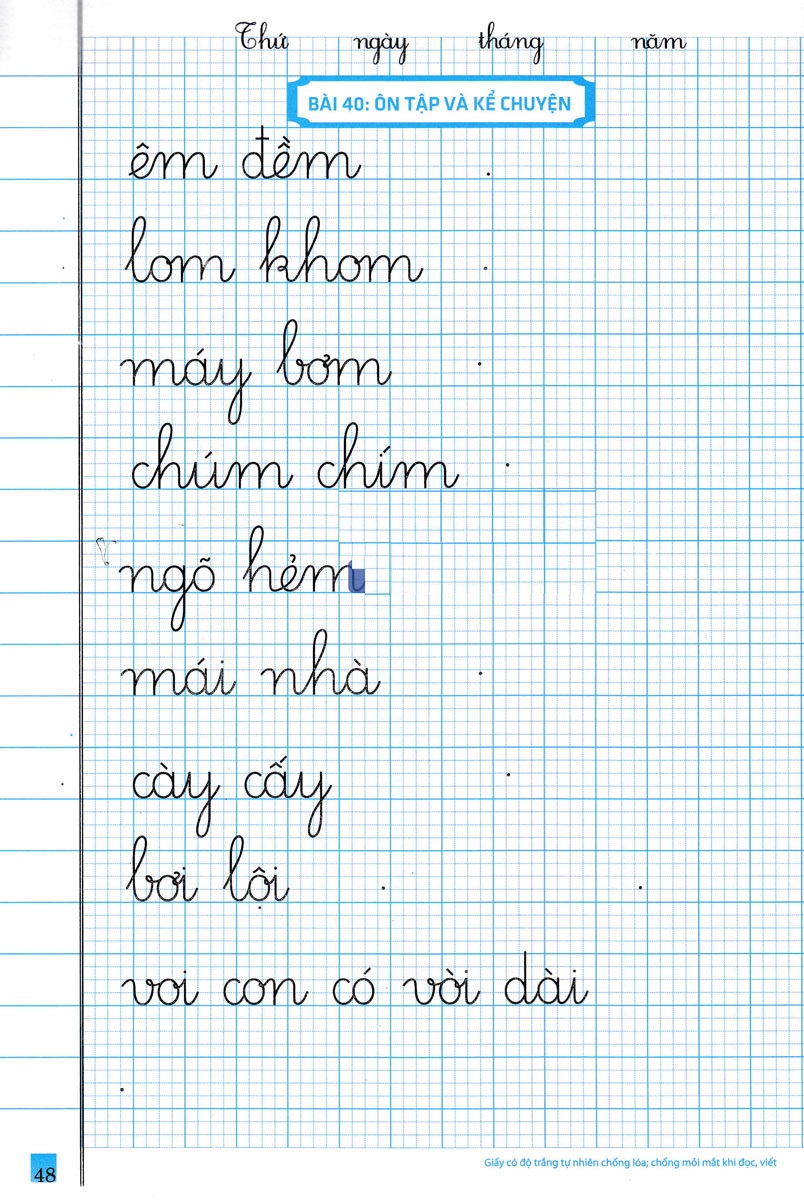 Thứ ngày tháng năm
BÀI 40: ÔN TẬP VÀ KỂ CHUYỆN
êm đềm
lom khom
máy bơm
chúm chím
ngõ hẻm
mái nhà
cày cấy
bơi lội
voi con có vòi dài
48
Giấy có độ trắng tự nhiên chống lóa; chống mỏi mắt khi đọc, viết